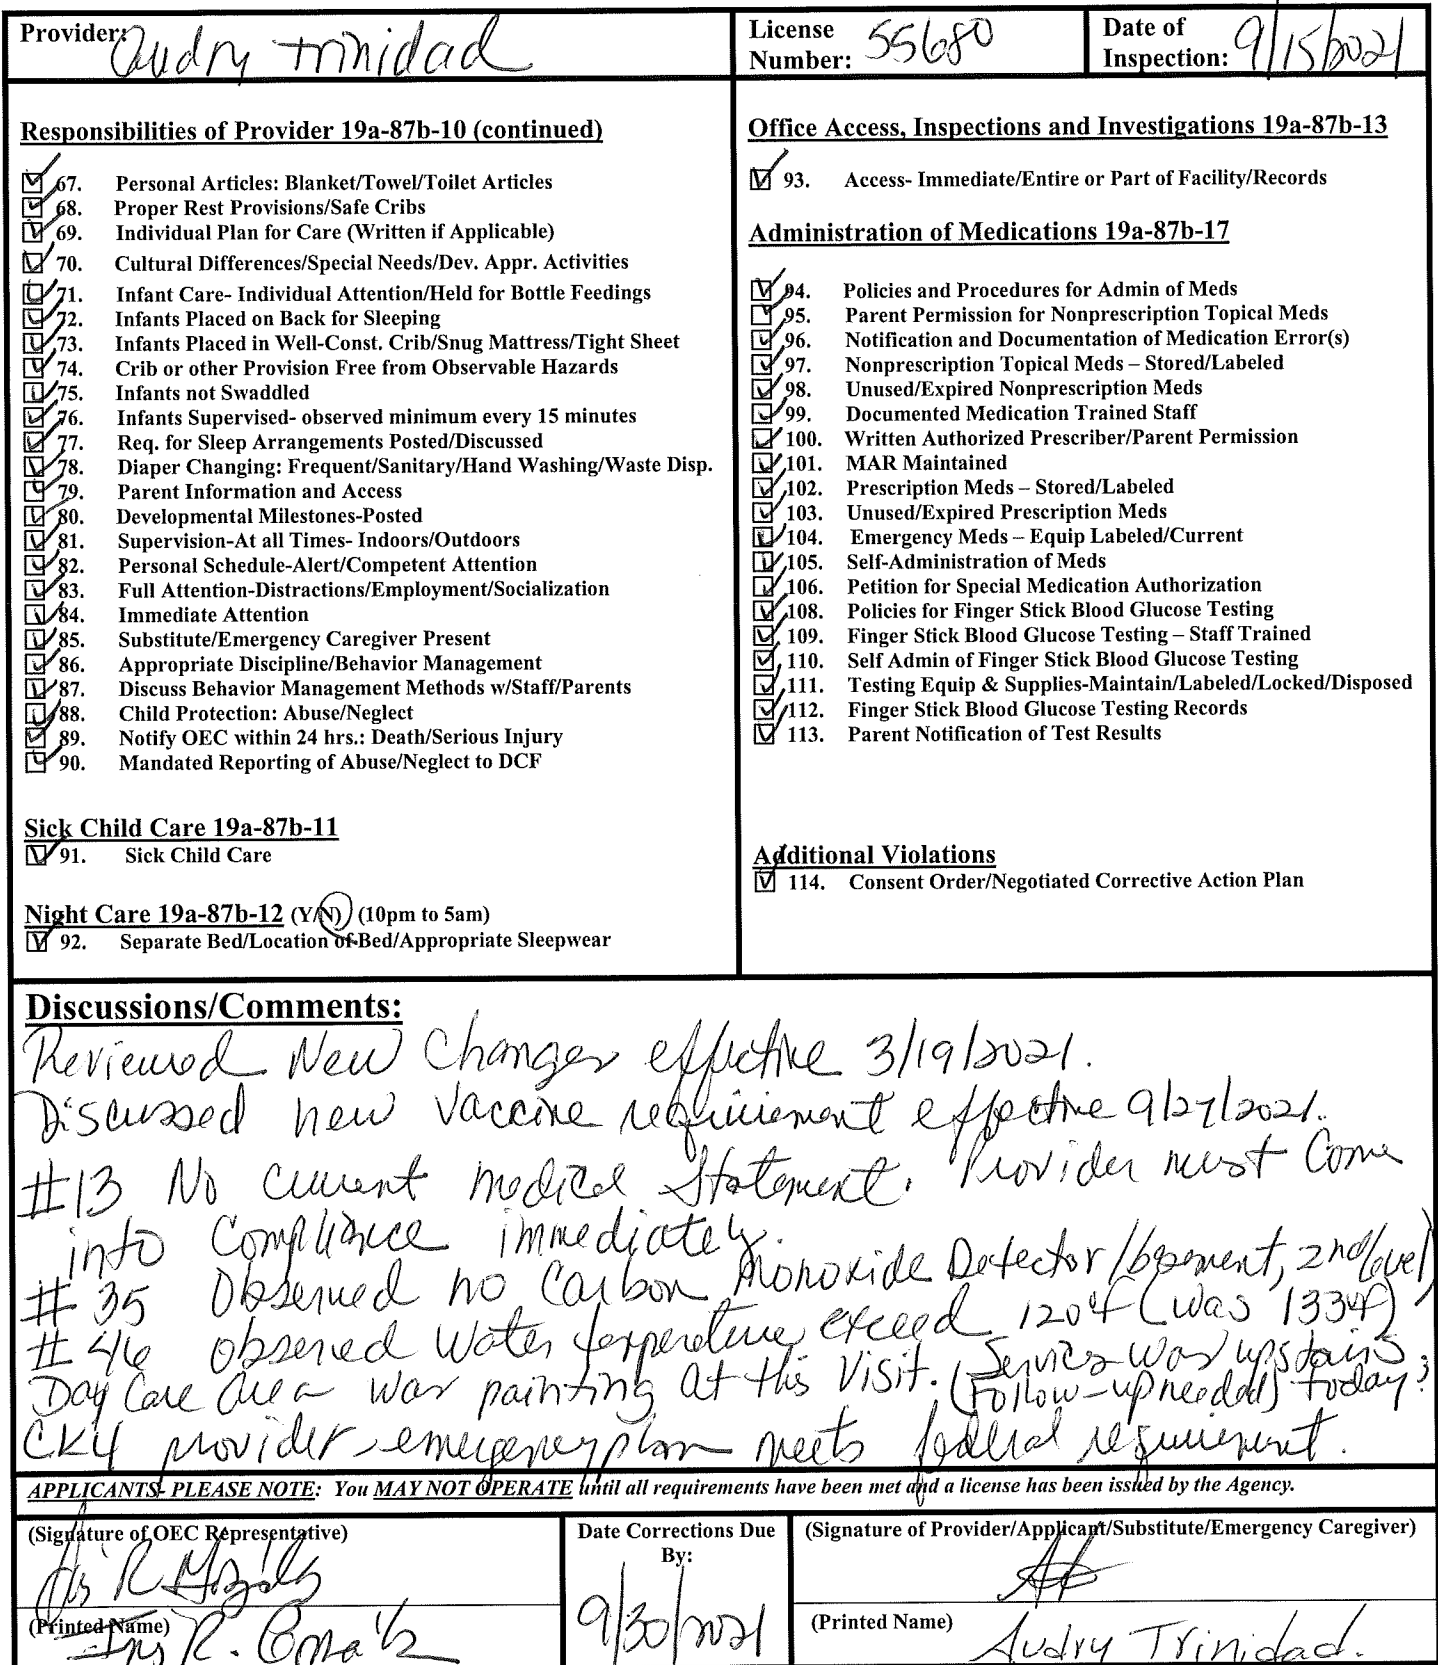 Provider: Audry Trinidad
License Number: 55680
Date of Inspection: 9/15/2021
Responsibilities of Provider 19a-87b-10 (continued)
67. Personal Articles: Blanket/Towel/Toilet Articles
68. Proper Rest Provisions/Safe Cribs
69. Individual Plan for Care (Written if Applicable)
70. Cultural Differences/Special Needs/Dev. Appr. Activities
71. Infant Care- Individual Attention/Held for Bottle Feedings
72. Infants Placed on Back for Sleeping
73. Infants Placed in Well-Const. Crib/Snug Mattress/Tight Sheet
74. Crib or other Provision Free from Observable Hazards
75. Infants not Swaddled
76. Infants Supervised- observed minimum every 15 minutes
77. Req. for Sleep Arrangements Posted/Discussed
78. Diaper Changing: Frequent/Sanitary/Hand Washing/Waste Disp.
79. Parent Information and Access
80. Developmental Milestones-Posted
81. Supervision-At all Times- Indoors/Outdoors
82. Personal Schedule-Alert/Competent Attention
83. Full Attention-Distractions/Employment/Socialization
84. Immediate Attention
85. Substitute/Emergency Caregiver Present
86. Appropriate Discipline/Behavior Management
87. Discuss Behavior Management Methods w/Staff/Parents
88. Child Protection: Abuse/Neglect
89. Notify OEC within 24 hrs.: Death/Serious Injury
90. Mandated Reporting of Abuse/Neglect to DCF
Sick Child Care 19a-87b-11
91. Sick Child Care
Night Care 19a-87b-12 (Y/N) (10pm to 5am)
92. Separate Bed/Location of Bed/Appropriate Sleepwear
Office Access, Inspections and Investigations 19a-87b-13
93. Access- Immediate/Entire or Part of Facility/Records
Administration of Medications 19a-87b-17
94. Policies and Procedures for Admin of Meds
95. Parent Permission for Nonprescription Topical Meds
96. Notification and Documentation of Medication Error(s)
97. Nonprescription Topical Meds – Stored/Labeled
98. Unused/Expired Nonprescription Meds
99. Documented Medication Trained Staff
100. Written Authorized Prescriber/Parent Permission
101. MAR Maintained
102. Prescription Meds – Stored/Labeled
103. Unused/Expired Prescription Meds
104. Emergency Meds – Equip Labeled/Current
105. Self-Administration of Meds
106. Petition for Special Medication Authorization
108. Policies for Finger Stick Blood Glucose Testing
109. Finger Stick Blood Glucose Testing – Staff Trained
110. Self Admin of Finger Stick Blood Glucose Testing
111. Testing Equip & Supplies-Maintain/Labeled/Locked/Disposed
112. Finger Stick Blood Glucose Testing Records
113. Parent Notification of Test Results
Additional Violations
114. Consent Order/Negotiated Corrective Action Plan
Discussions/Comments:
Reviewed New Changes effective 3/19/2021.
Discussed new vaccine requirement effective 9/27/2021.
#13 No current medical Statement. Provider must Come
into Compliance immediately.
#35 Observed no Carbon Monoxide Detector/basement, 2nd level
#46 observed Water temperature exceed 120°f (was 133°f)
Day Care area was painting at this visit. (Services was upstairs today;
(Follow-up needed)
CK4 provider emergency plan meets federal requirement.
APPLICANTS- PLEASE NOTE: You MAY NOT OPERATE until all requirements have been met and a license has been issued by the Agency.
(Signature of OEC Representative)
(Printed Name)
Date Corrections Due By: 9/30/2021
(Signature of Provider/Applicant/Substitute/Emergency Caregiver)
(Printed Name) Audry Trinidad.